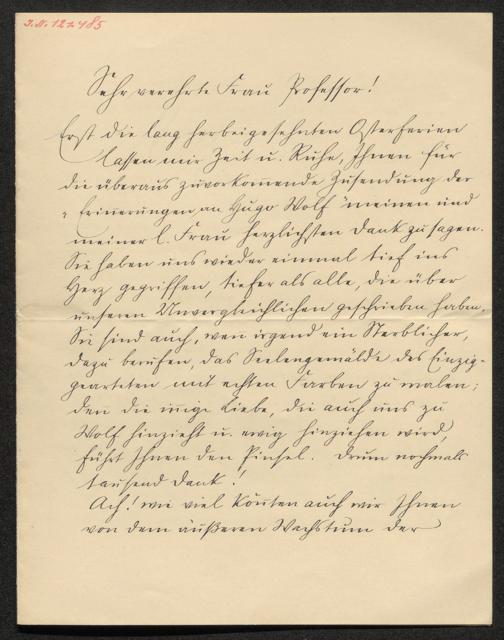 I.N. 127.485
Sehr verehrte Frau Professor!
Erst die lang herbeigesehnten Osterferien
lassen mir Zeit u. Ruhe, Ihnen für
die überaus zuvorkom̄ende Zusendung der
„Erin̄erungen an Hugo Wolf" meinen und
meiner l. Frau herzlichsten Dank zu sagen.
Sie haben uns wieder einmal tief ins
Herz gegriffen, tiefer als alle, die über
unseren Unvergleichlichen geschrieben haben.
Sie sind auch, wen̄ irgend ein Sterblicher,
dazu berufen, das Seelengemälde des Einzig-
gearteten mit echten Farben zu malen;
den̄ die in̄ige Liebe, die auch uns zu
Wolf hinzieht u. ewig hinziehen wird,
führt Ihnen den Pinsel. Drum nochmals
tausend Dank!
Ach! wie viel kön̄ten auch wir Ihnen
von dem äußeren Wachstum der